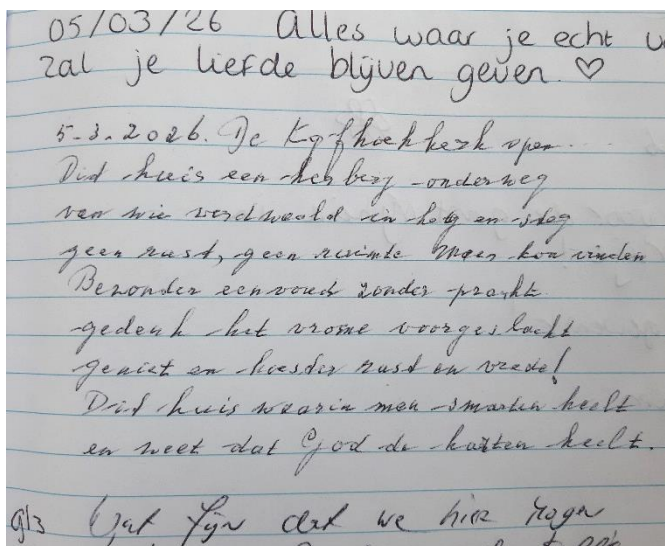 05/03/26 Alles waar je echt
zal je liefde blijven geven. ♡
5-3-2026. De Kapelhoekkerk open...
Dit huis een herberg onderweg
van wie verdwaald in heg en steg
geen rust, geen ruimte meer kon vinden
Bezonder eenvoud zonder pracht
gedenk het vrome voorgeslacht
geniet en koester rust en vrede!
Dit huis waarin men smarten heelt
en weet dat God de harten heelt.
9/3 Wat fijn dat we hier mogen